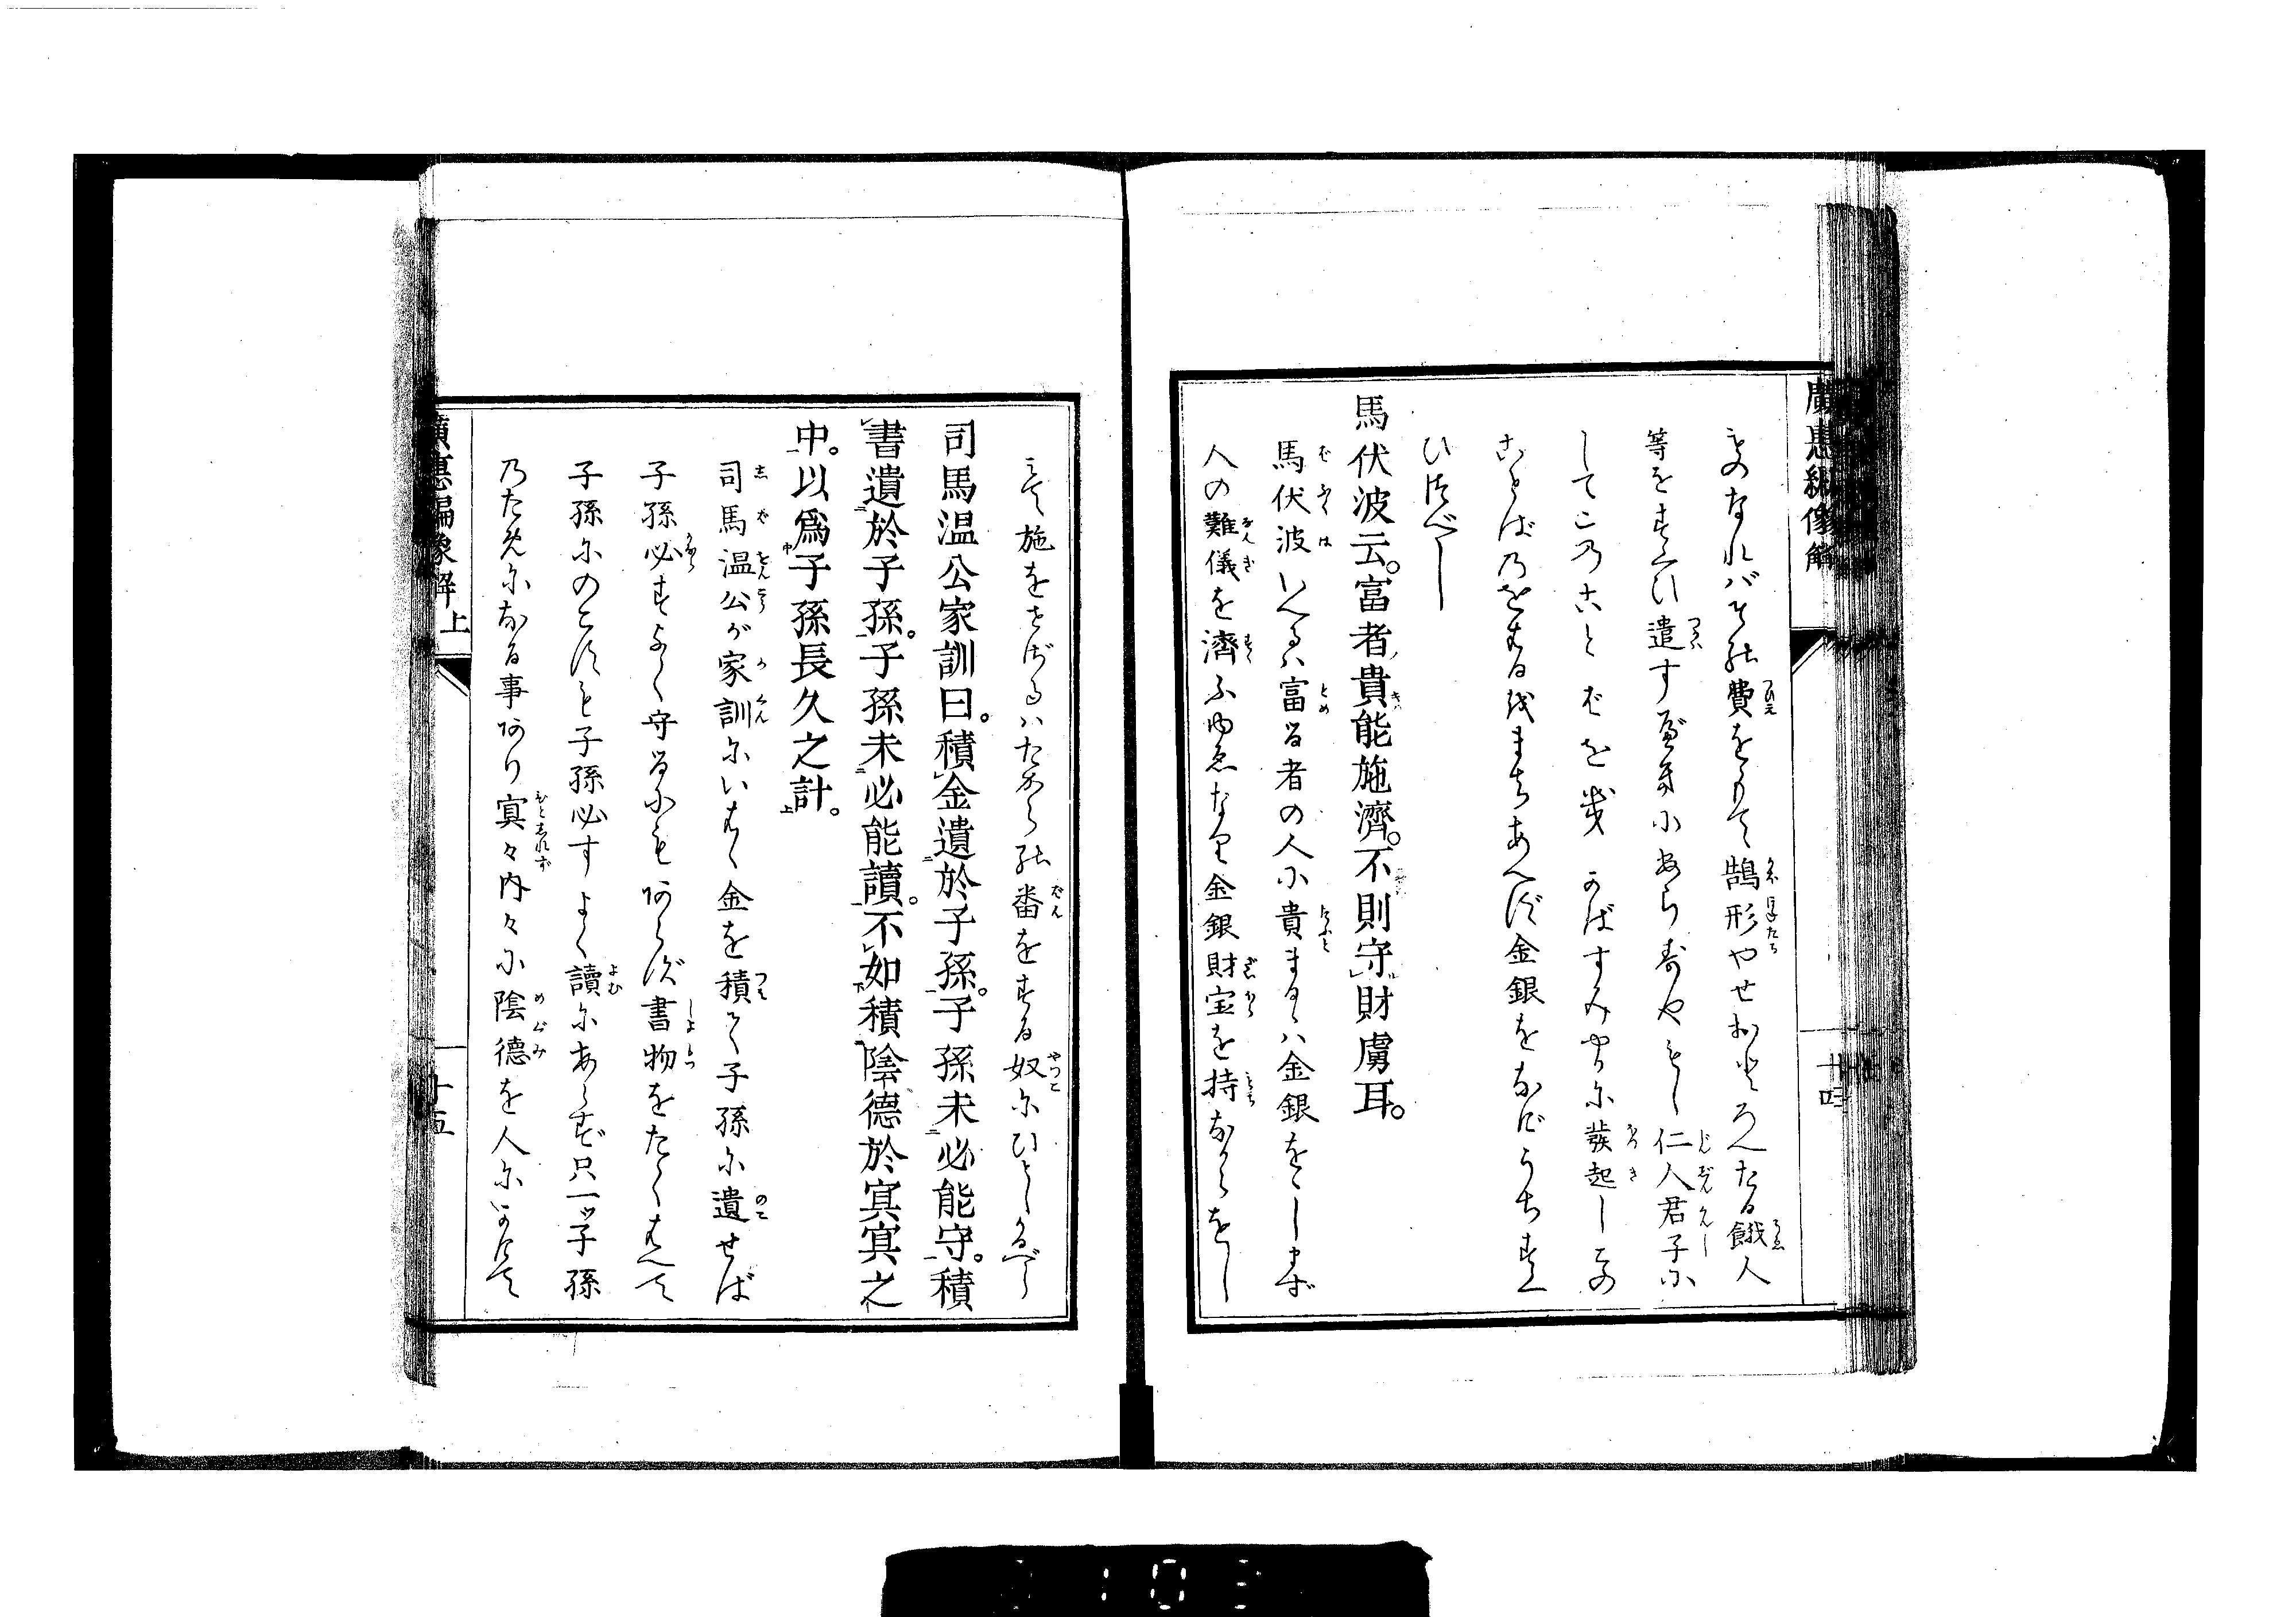 廣恵編像解
ものなればその費をもて鵠形やせおとろへたる餓人
等をすくひ遣すべきにあらずやもし仁人君子に
してこのことばを幾
金銀を
ひ給べし
馬伏波云。富者貴能施濟。不則守財虜耳。
馬伏波いへるは富る者の人に貴まるゝは金銀をおしまず
人の難儀を濟ふゆゑなり金銀財宝を持ながらをし
十四
みて施をせざるはたゞ番をする奴にひとしかるべし
司馬温公家訓曰。積金遺於子孫。子孫未必能守。積
書遺於子孫。子孫未必能讀。不如積陰徳於冥冥之
中。以爲子孫長久之計。
司馬温公が家訓にいはく金を積て子孫に遺せば
子孫必ずよく守るにもあらず書物をたくはへて
子孫にのこすも子孫必すよく讀にあらず只子孫
のためになる事あり冥々内々に陰徳を人にかけて
廣惠編像解 上
十五
103